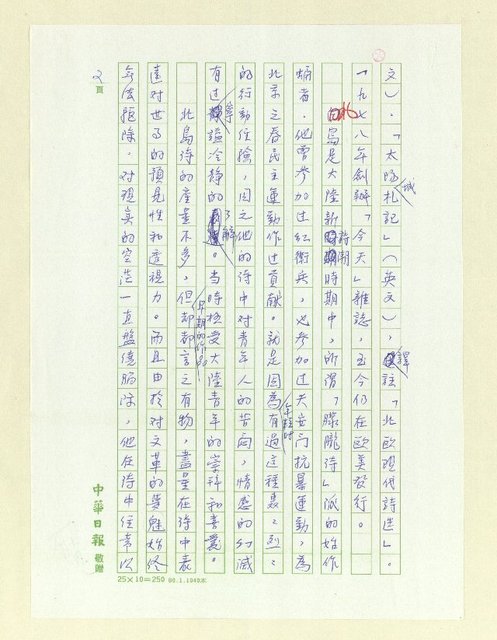 文)、「太陽城札記」(英文),譯註「北歐現代詩選」。
一九七八年創辦「今天」雜誌,至今仍在歐美發行。
北島是大陸新詩潮時期中,所謂「朦朧詩」派的始作
俑者。他曾參加過紅衛兵,也參加過天安門抗暴運動,為
北京之春民主運動作過貢獻。就是因為年輕時有過這種轟轟烈烈
的行動經驗,因之他的詩中對青年人的苦悶,情感的幻滅
有過寧謐冷靜的了解。當時極受大陸青年的崇拜和喜愛。
北島詩的產量不多,但早期的作品卻都言之有物,盡量在詩中表
達對世事的預見性和透視力。而且由於對文革的夢魘始終
無法驅除,對現實的空茫一直盤繞腸際,他在詩中經常以
2頁
中華日報敬贈
25×10=250